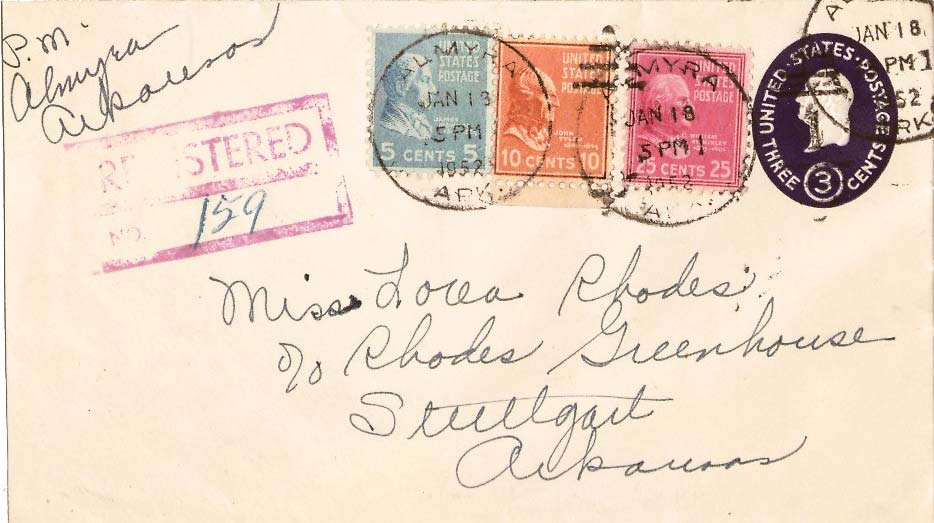 P.M
Almyra
Arkansas
REGISTERED
NO. 159
ALMYRA
JAN 18
5 PM
1952
ARK.
UNITED
STATES
POSTAGE
JAMES
5 CENTS 5
UNITED
STATES
POSTAGE
JOHN
TYLER
10 CENTS 10
MYRA
JAN 18
5 PM
UNITED
STATES
POSTAGE
WILLIAM
McKINLEY
25 CENTS 25
UNITED·STATES·POSTAGE
THREE 3 CENTS
JAN 18
PM
52
ARK
Miss Rhodes
c/o Rhodes Greenhouse
Stuttgart
Arkansas